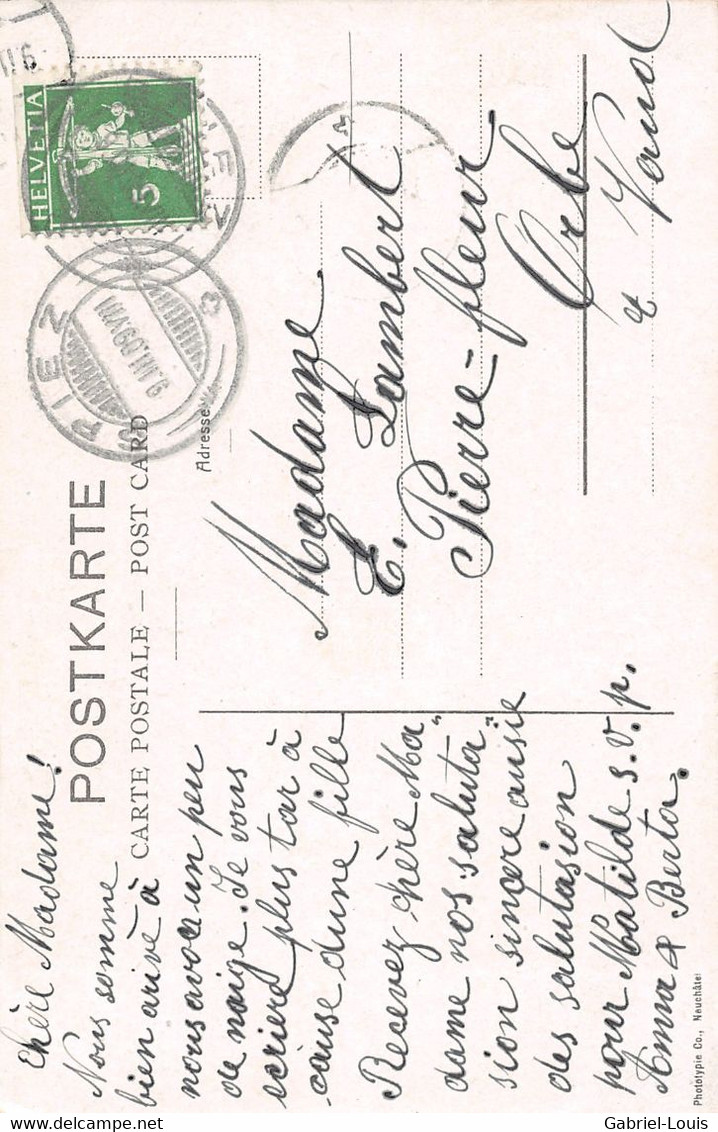 POSTKARTE
CARTE POSTALE — POST CARD
HELVETIA
5
PIEZ
9.III.09.VIII
Adresse
Madame
E. Lambert
Pierre-fleur
Orbe
Vaud
Chère Madame!
Nous somme
bien arivé à
nous avoa un peu
de naige. Je vous
scrière plus tar à
cause dune fille
Recevez chère Ma"
dame nos saluta"
sion sincre ausie
des salutasion
pour Matilde s.v.p.
Anna & Berta.
Phototypie Co., Neuchâtel
Gabriel-Louis